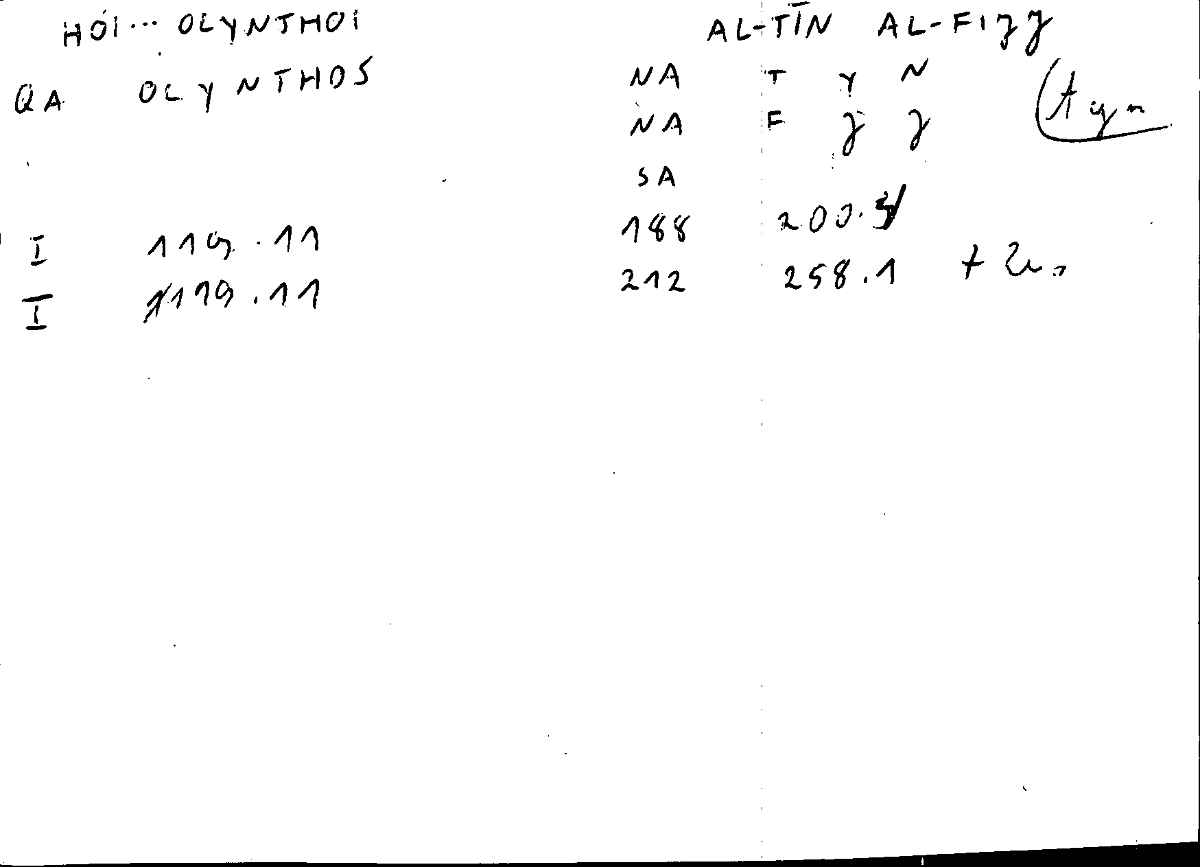 HOI... OLYNTHOI AL-TĪN AL-FIJJ
QA OLYNTHOS NA T Y N
NA F J J
SA
I 119.11 188 200.5
I 119.11 212 258.1 +